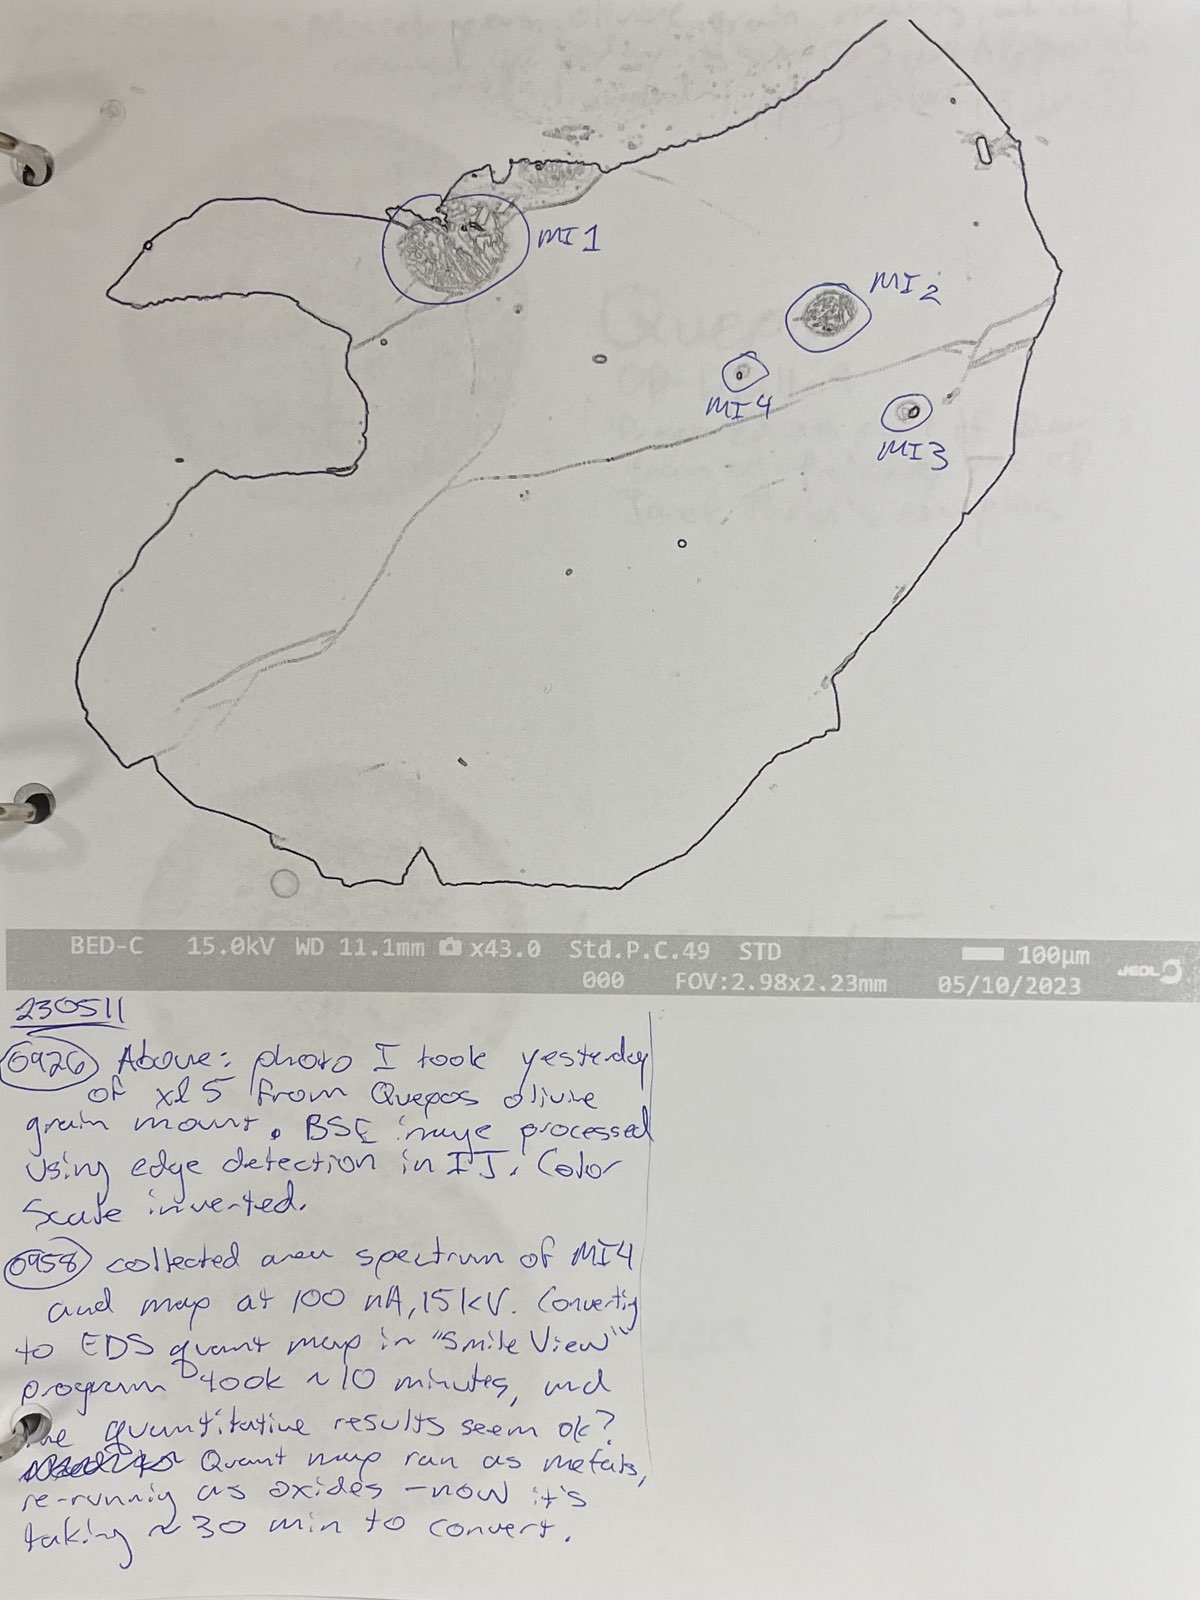 MI1
MI2
MI4
MI3
BED-C 15.0kV WD 11.1mm x43.0 Std.P.C.49 STD 100µm
000 FOV:2.98x2.23mm 05/10/2023 JEOL
230511
0926 Above: photo I took yesterday
of xl 5 from Quepos olivine
grain mount. BSE image processed
using edge detection in IJ. Color
Scale inverted.
0958 collected area spectrum of MI4
and map at 100 nA, 15kV. Converting
to EDS quant map in "Smile View"
program took ~10 minutes, and
the quantitative results seem ok?
Quant map ran as metals,
re-running as oxides - now it's
taking ~30 min to convert.